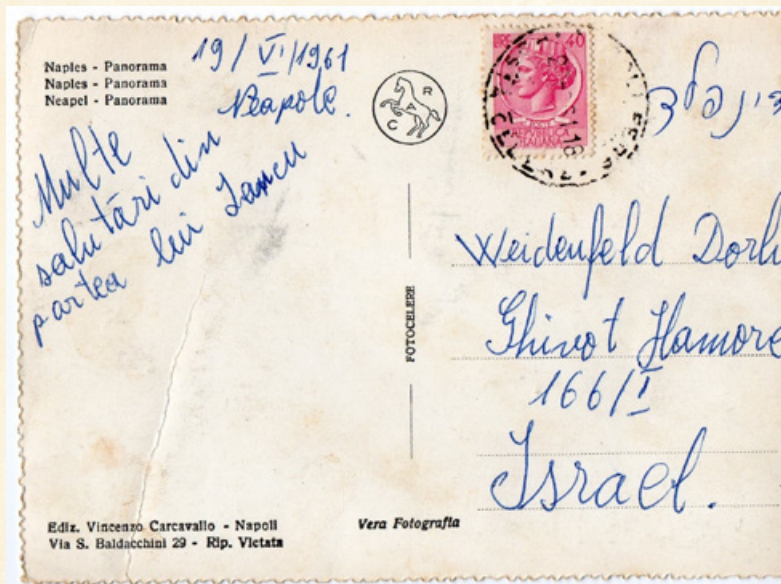 Naples - Panorama
Naples - Panorama
Neapel - Panorama
19/VI/1961
Neapole.
Multe
salutări din
partea lui Iancu
R
A
C
LIRE 40
POSTE
REPVBBLICA
ITALIANA
FOTOCELERE
Weidenfeld Dorli
Ghivot Hamore
166/I
Israel.
Ediz. Vincenzo Carcavallo - Napoli
Via S. Baldacchini 29 - Rip. Vietata
Vera Fotografia